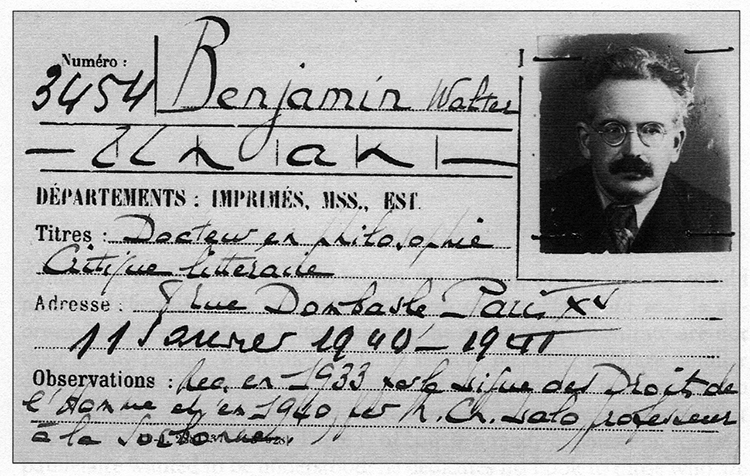 Numéro :
3454 Benjamin Walter
— Un | an | —
DÉPARTEMENTS : IMPRIMÉS, MSS., EST.
Titres : Docteur en philosophie
Critique littéraire
Adresse : rue Dombasle Paris XV
11 Janvier 1940 - 1941
Observations : Rec. en 1933 par la Ligue des Droits de
l'Homme et en 1940 par M. Ch. Lalo professeur
à la Sorbonne